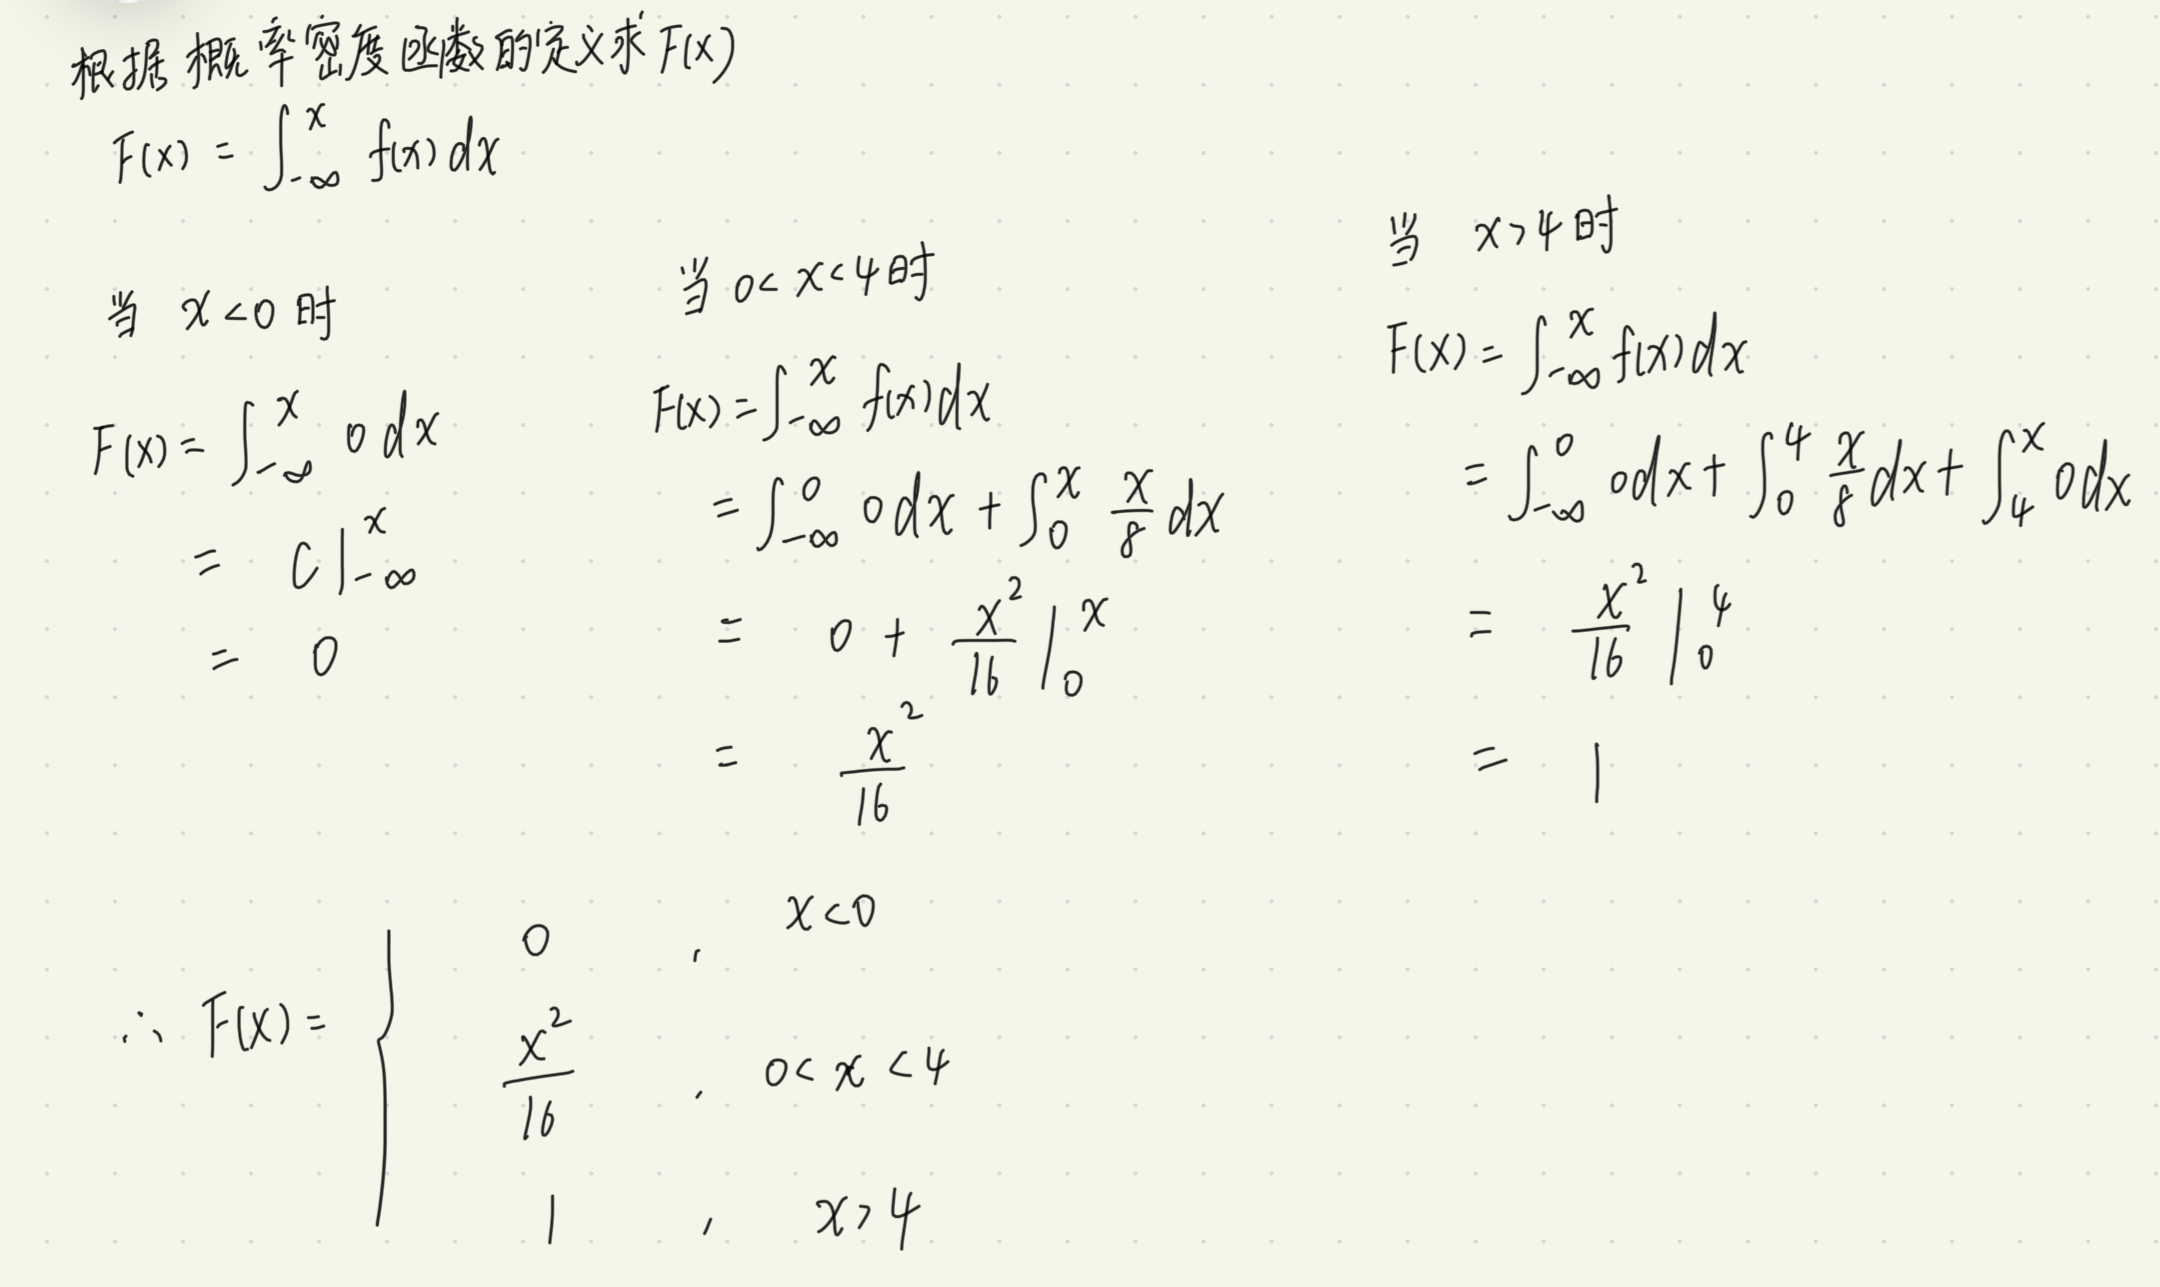 根据概率密度函数的定义求F(x)
F(x) = ∫_{-∞}^{x} f(x) dx
当 x<0 时
F(x) = ∫_{-∞}^{x} 0 dx
= C|_{-∞}^{x}
= 0
当 0<x<4 时
F(x) = ∫_{-∞}^{x} f(x) dx
= ∫_{-∞}^{0} 0 dx + ∫_{0}^{x} x/8 dx
= 0 + x²/16 |_{0}^{x}
= x²/16
当 x>4 时
F(x) = ∫_{-∞}^{x} f(x) dx
= ∫_{-∞}^{0} 0 dx + ∫_{0}^{4} x/8 dx + ∫_{4}^{x} 0 dx
= x²/16 |_{0}^{4}
= 1
∴ F(x) = {
0 , x<0
x²/16 , 0<x<4
1 , x>4